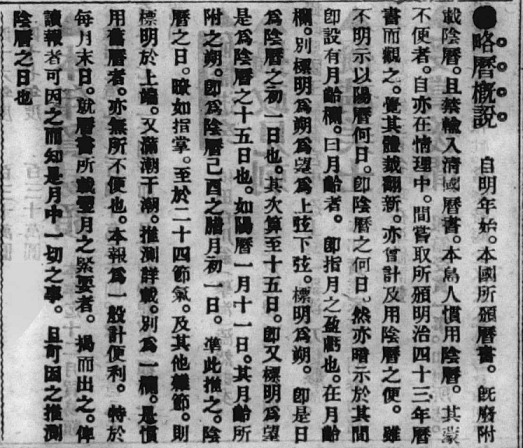 ●略曆概說　自明年始。本國所頒曆書。既廢附
載陰曆。且禁輸入清國曆書。本島人慣用陰曆。其蒙
不便者。自亦在情理中。間嘗取所頒明治四十三年曆
書而觀之。覺其體裁翻新。亦曾計及用陰曆之便。雖
不明示以陽曆何日。卽陰曆之何日。然亦暗示於其間
卽設有月齡欄。曰月齡者。卽指月之盈虧也。在月齡
欄。別標明爲朔爲望爲上弦下弦。標明爲朔。卽是日
爲陰曆之初一日也。其次算至十五日。卽又標明爲望
是爲陰曆之十五日也。如陽曆一月十一日。其月齡所
附之朔。卽爲陰曆己酉之臘月初一日。準此推之。陰
曆之日。瞭如指掌。至於二十四節氣。及其他雜節。則
標明於上端。又滿潮干潮。推測詳載。別爲一欄。是慣
用舊曆者。亦無所不便也。本報爲一般計便利。特於
每月末日。就曆書所載翌月之緊要者。揭而出之。俾
讀報者可因之而知是月中一切之事。且可因之推測
陰曆之日也